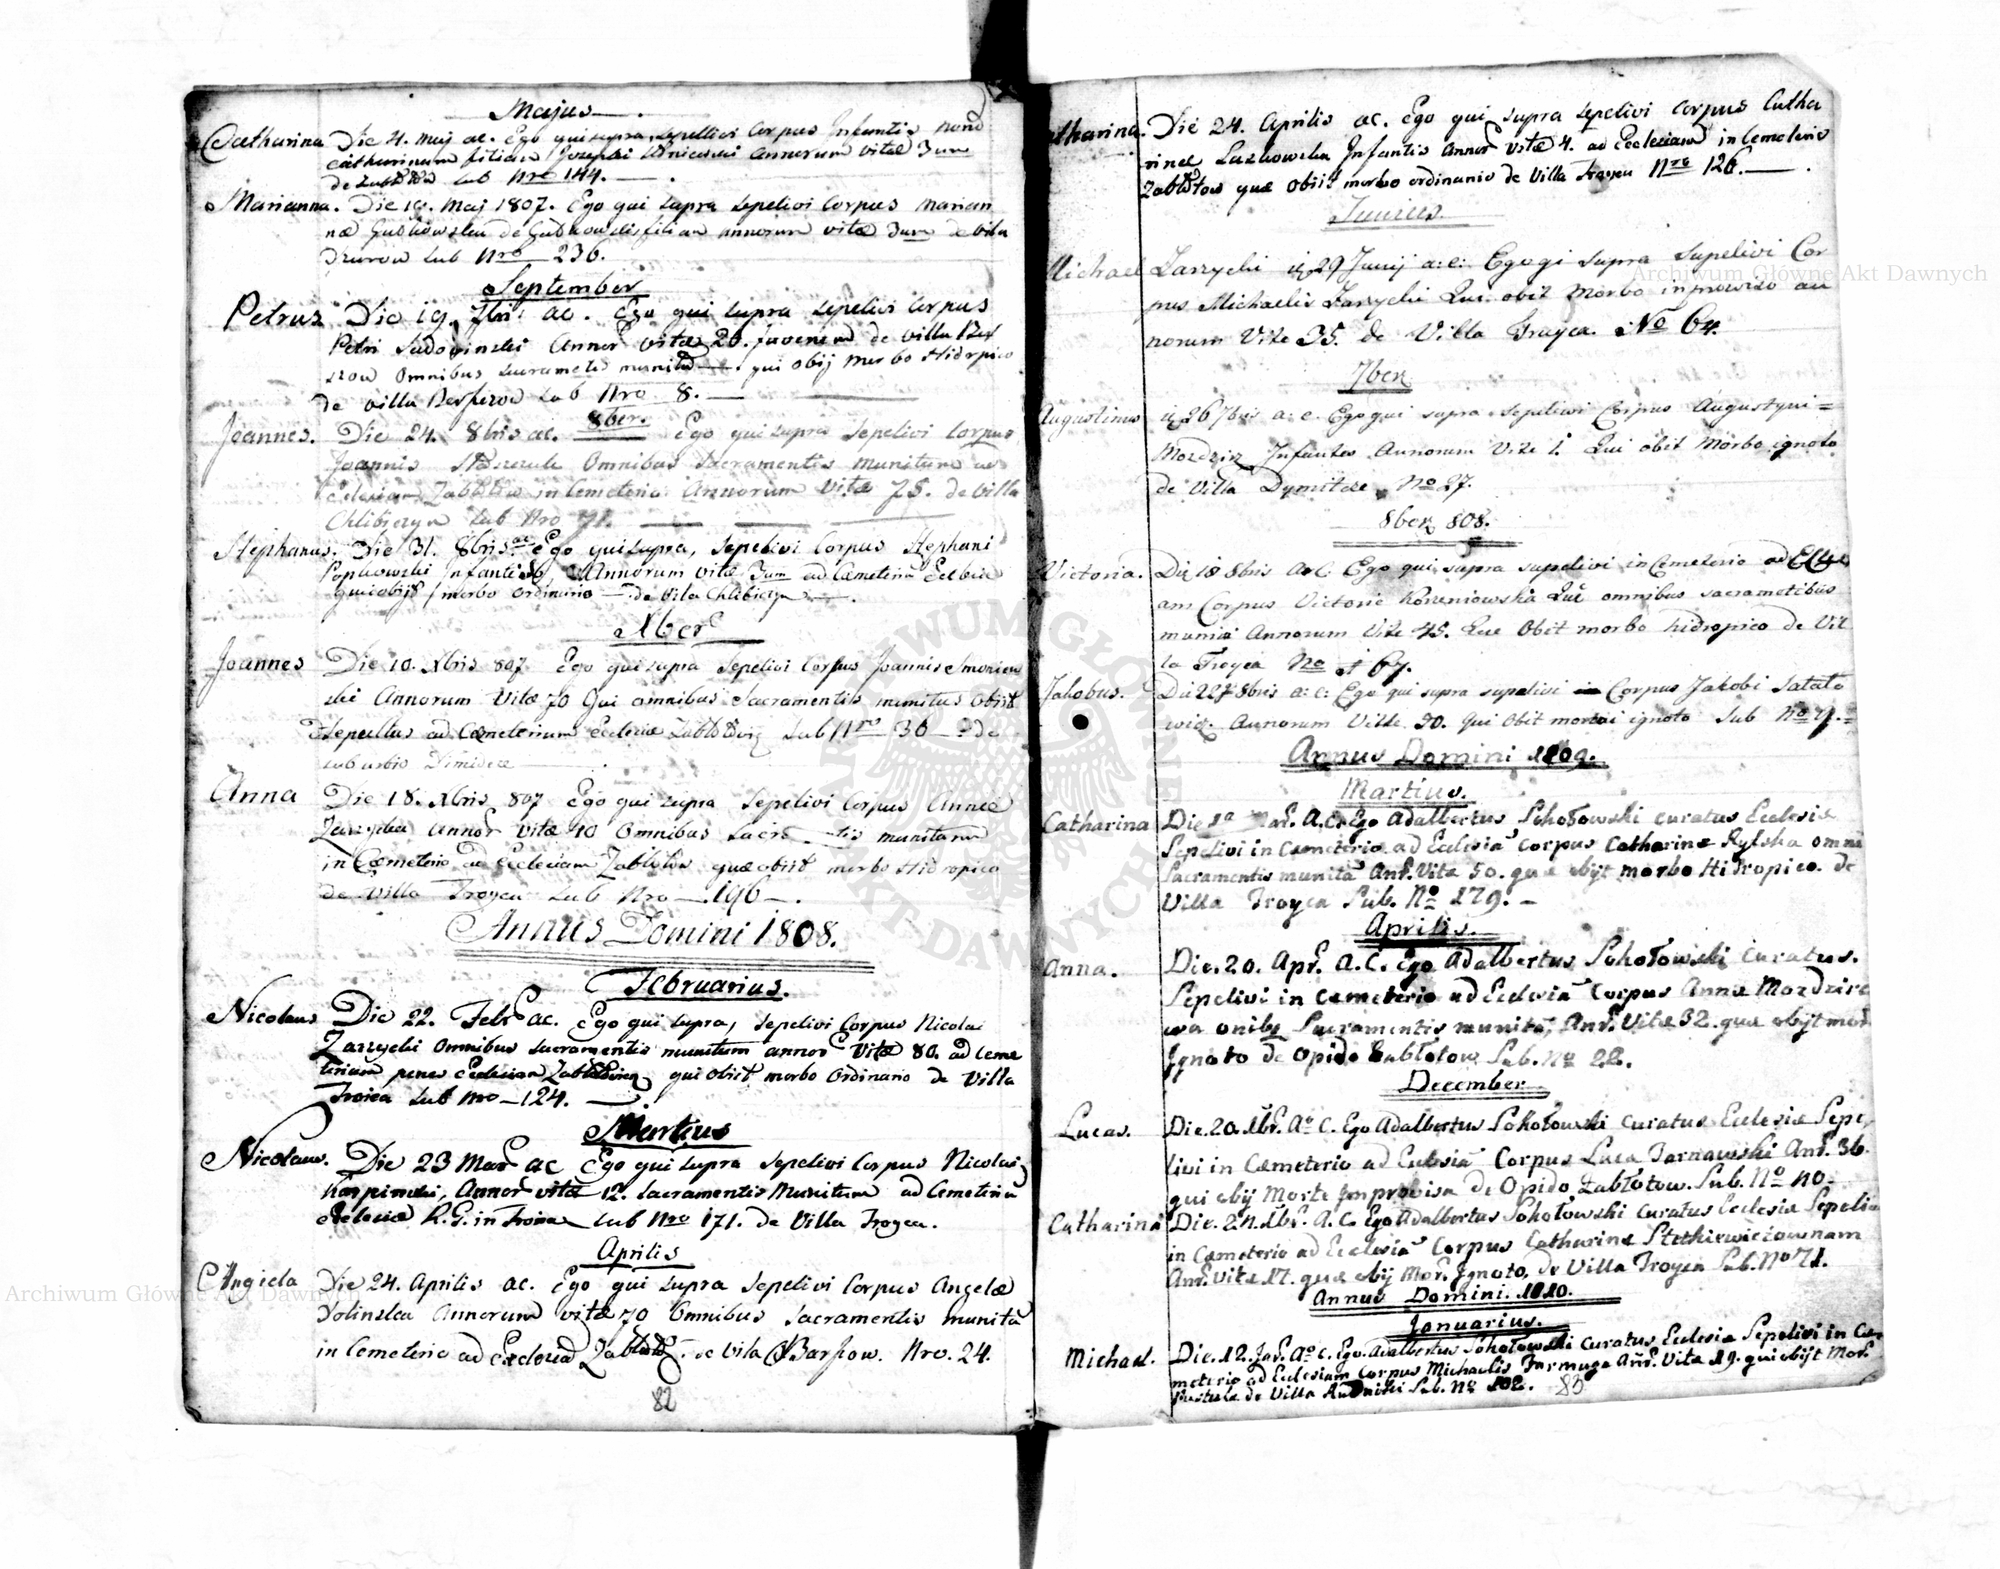 Majus
Catharina Die 4. Maij ac. Ego qui supra sepellivi Corpus Infantis nomi
Catharinam filiam Josephi annorum vitæ 3um
de sub Nro 144.
Marianna. Die 19. Maj 1807. Ego qui supra sepelivi Corpus Marian
næ de filiam annorum vitæ 3um de villa
Dzurow sub Nro 236.
September
Petrus Die 19. 7bris ac. Ego qui supra sepelivi Corpus
Petri Sadowinski Annor vitæ 20. juvenem de villa
omnibus sacrametis munitu qui obij morbo Hidropico
de villa sub Nro 8.
8ber.
Joannes. Die 24. 8bris ac. Ego qui supra sepelivi Corpus
Joannis Omnibus Sacramentis munitum ad
Eclesiam Zablotow in Cemeterio Annorum Vitæ 75. de villa
Chlibiczyn sub Nro 71.
Stephanus. Die 31. 8bris ac Ego qui supra, sepelivi Corpus Stephani
Popkowski Infantis, Annorum vitæ 3um ad Cæmeteriu
qui obijt morbo ordinario de Vila Chlibiczyn
Xber
Joannes Die 10. Xbris 807 Ego qui supra Sepelivi Corpus Joannis
ski Annorum Vitæ 70 Qui omnibus Sacramentis munitus obiit
Sepultus ad Cæmeterium Ecclesiæ sub Nro 36 de
suburbio
Anna Die 18. Xbris 807 Ego qui supra Sepelivi Corpus Annæ
Annor Vitæ 40 Omnibus munitam
in Cæmeterio ad Ecclesiam Zablotow quæ obiit morbo Hidropico
de Villa Troyca sub Nro 196.
Annus Domini 1808.
Februarius.
Nicolaus Die 22. Febr ac. Ego qui supra, sepelivi Corpus Nicolai
Zarzycki omnibus sacramentis munitum annor Vitæ 80. ad Ceme
terium penes Ecclesiam qui obiit morbo Ordinario de Villa
Troica sub Nro 124.
Martius
Nicolaus. Die 23 Mar ac Ego qui supra sepelivi Corpus Nicolai
Karpinski, Annor vitæ 12. sacramentis munitum ad Cemeteriu
Eclesiæ R. G. in Troica sub Nro 171. de Villa Troyca.
Aprilis
Angiela Die 24. Aprilis ac. Ego qui supra Sepelivi Corpus Angelæ
Annorum vitæ 70 Omnibus Sacramentis munita
in Cemeterio ad Ecclesia de Vila Nro. 24.
82
Catharina. Die 24. Aprilis ac. Ego qui supra sepelivi Corpus Catha
rinæ Laskowska Infantis Annor vitæ 4. ad Ecclesiam in Cemeterio
Zabłotow quæ obiit morbo ordinario de Villa Troyca Nro 126.
Junius
Michael Zarzycki 29 Junij a: c: Ego qi supra Sepelivi Cor
pus Michaelis Zarzycki Qui obit morbo inprowiso an
norum Vite 35. de Villa Troyca. No 64.
7ber
Augustinus 26 7bris a: c. Ego qui supra Sepeliwi Corpus Augustyni=
Mozdzin Infantes Annorum Vite 1. Qui obit morbo ignoto
de Villa Dymitcze No 27.
8ber 808.
Victoria. Die 18 8bris a c. Ego qui supra supelivi in Cemeterio ad
am Corpus Victorie Korzeniowska Que omnibus sacrametibus
munia Annorum Vite 45. Que Obit morbo hidropico de Vil
la Troyca No 67.
Jakobus. Die 27 8bris a: c: Ego qui supra supelivi Corpus Jakobi
Annorum Vitte 50. Qui obit morboi ignoto Sub No 7.=
Annus Domini 1809.
Martius.
Catharina Die A.C. Ego Adalbertus Sokołowski curatus Ecclesiæ
Sepelivi in Cæmeterio ad Eclesia Corpus Catharinæ Rylska omni
Sacramentis munita Anr. Vitæ 50. quæ obijt morbo Hidropico. de
Villa Troyca Sub. No 179.
Aprilis.
Anna. Die. 20. Apr. A. C. Ego Adalbertus Sokołowski Curatus.
Sepelivi in Cæmeterio ad Eclesia Corpus Annæ Mozdzire
wa onibs Sacramentis munita, Anr. Vitæ 32. quæ obijt mor
Ignoto de Opido Zabłotow Sub. No 22.
December
Lucas. Die. 20. Xbr. Ao C. Ego Adalbertus Sokołowski Curatus Eclesiæ Sepe
livi in Cæmeterio ad Eclesia Corpus Luca Tarnawski Anr. 36.
qui obij Morte Jmproviza de Opido Zabłotow. Sub. No 40.
Catharina Die. 24. Xbr. A. C. Ego Adalbertus Sokołowski Curatus Eclesiæ Sepeli
in Cæmeterio ad Ecclesia Corpus Catharinæ Stetkiewiczownam
Anr. Vitæ 17. quæ obij Mor. Jgnoto, de Villa Troyca Sub. No 71.
Annus Domini. 1810.
Januarius.
Michael. Die. 12. Jar. Ao C. Ego. Adalbertus Sokołowski Curatus Eclesiæ Sepelivi in Cæ
meterio ad Eclesiam Corpus Michaelis Furmuga Anr. Vita 19. qui obijt Mor.
de Villa Sub. No 102. 83
Archiwum Główne Akt Dawnych
Archiwum Główne Akt Dawnych
ARCHIWUM GŁÓWNE AKT DAWNYCH